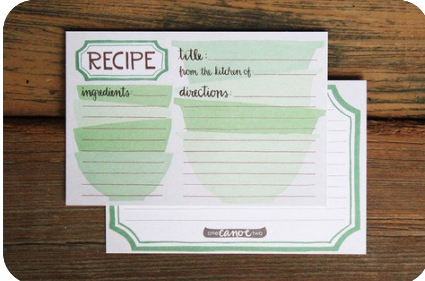 RECIPE
title:
from the kitchen of
ingredients
directions:
one canoe two